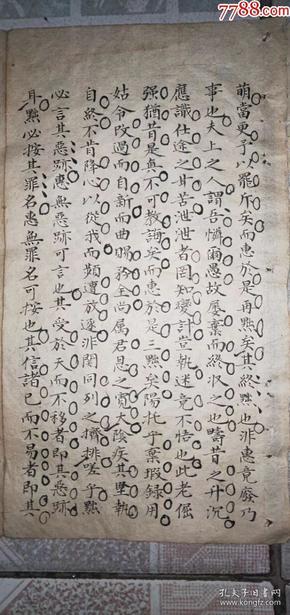 萌當更予以罷斥矣而惠於是再黜矣其終黜也非惠竟廢乃
事也夫上之人謂吾憐爾愚故屢棄而終收之也疇昔之升沉
應識仕途之甘苦泄泄者罔知變計豈執迷竟不悟也此老倔
强猶昔是真不可教誨矣而惠於是三黜矣陽托乎棄瑕録用
姑令改過而自新而曲賜矜全尚属君恩之寬大陰疾其堅執
自終不肯降心以從我而頻遭放逐非関同列之擠排嗟乎黜
必言其惡跡惠無惡跡可言也其受於天而不移者即其惡跡
耳黜必按其罪名惠無罪名可按也其信諸已而不易者即其
7788.com
孔夫子旧书网